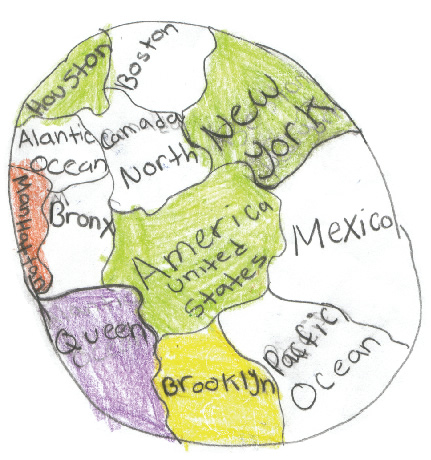 Houston
Boston
New
York
Alantic
Ocean
Camada
North
Manhattan
Bronx
America
united
States
Mexico
Queen
Brooklyn
Pacific
Ocean